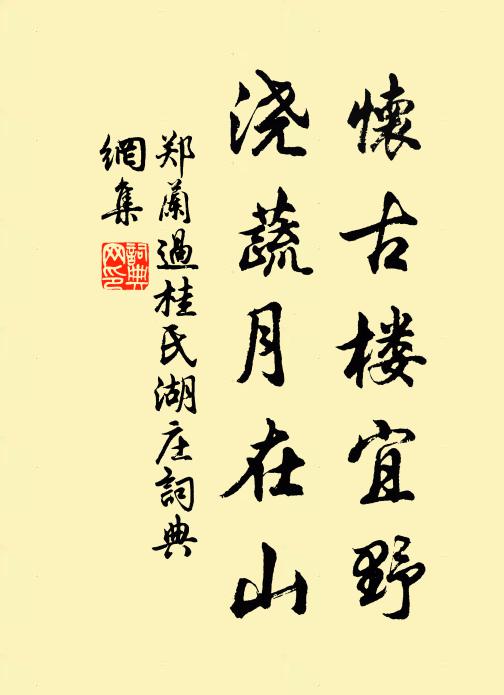 懷古楼宜野
浇蔬月在山
郑蘭過桂氏湖庄詞典
網集
詞典
网印